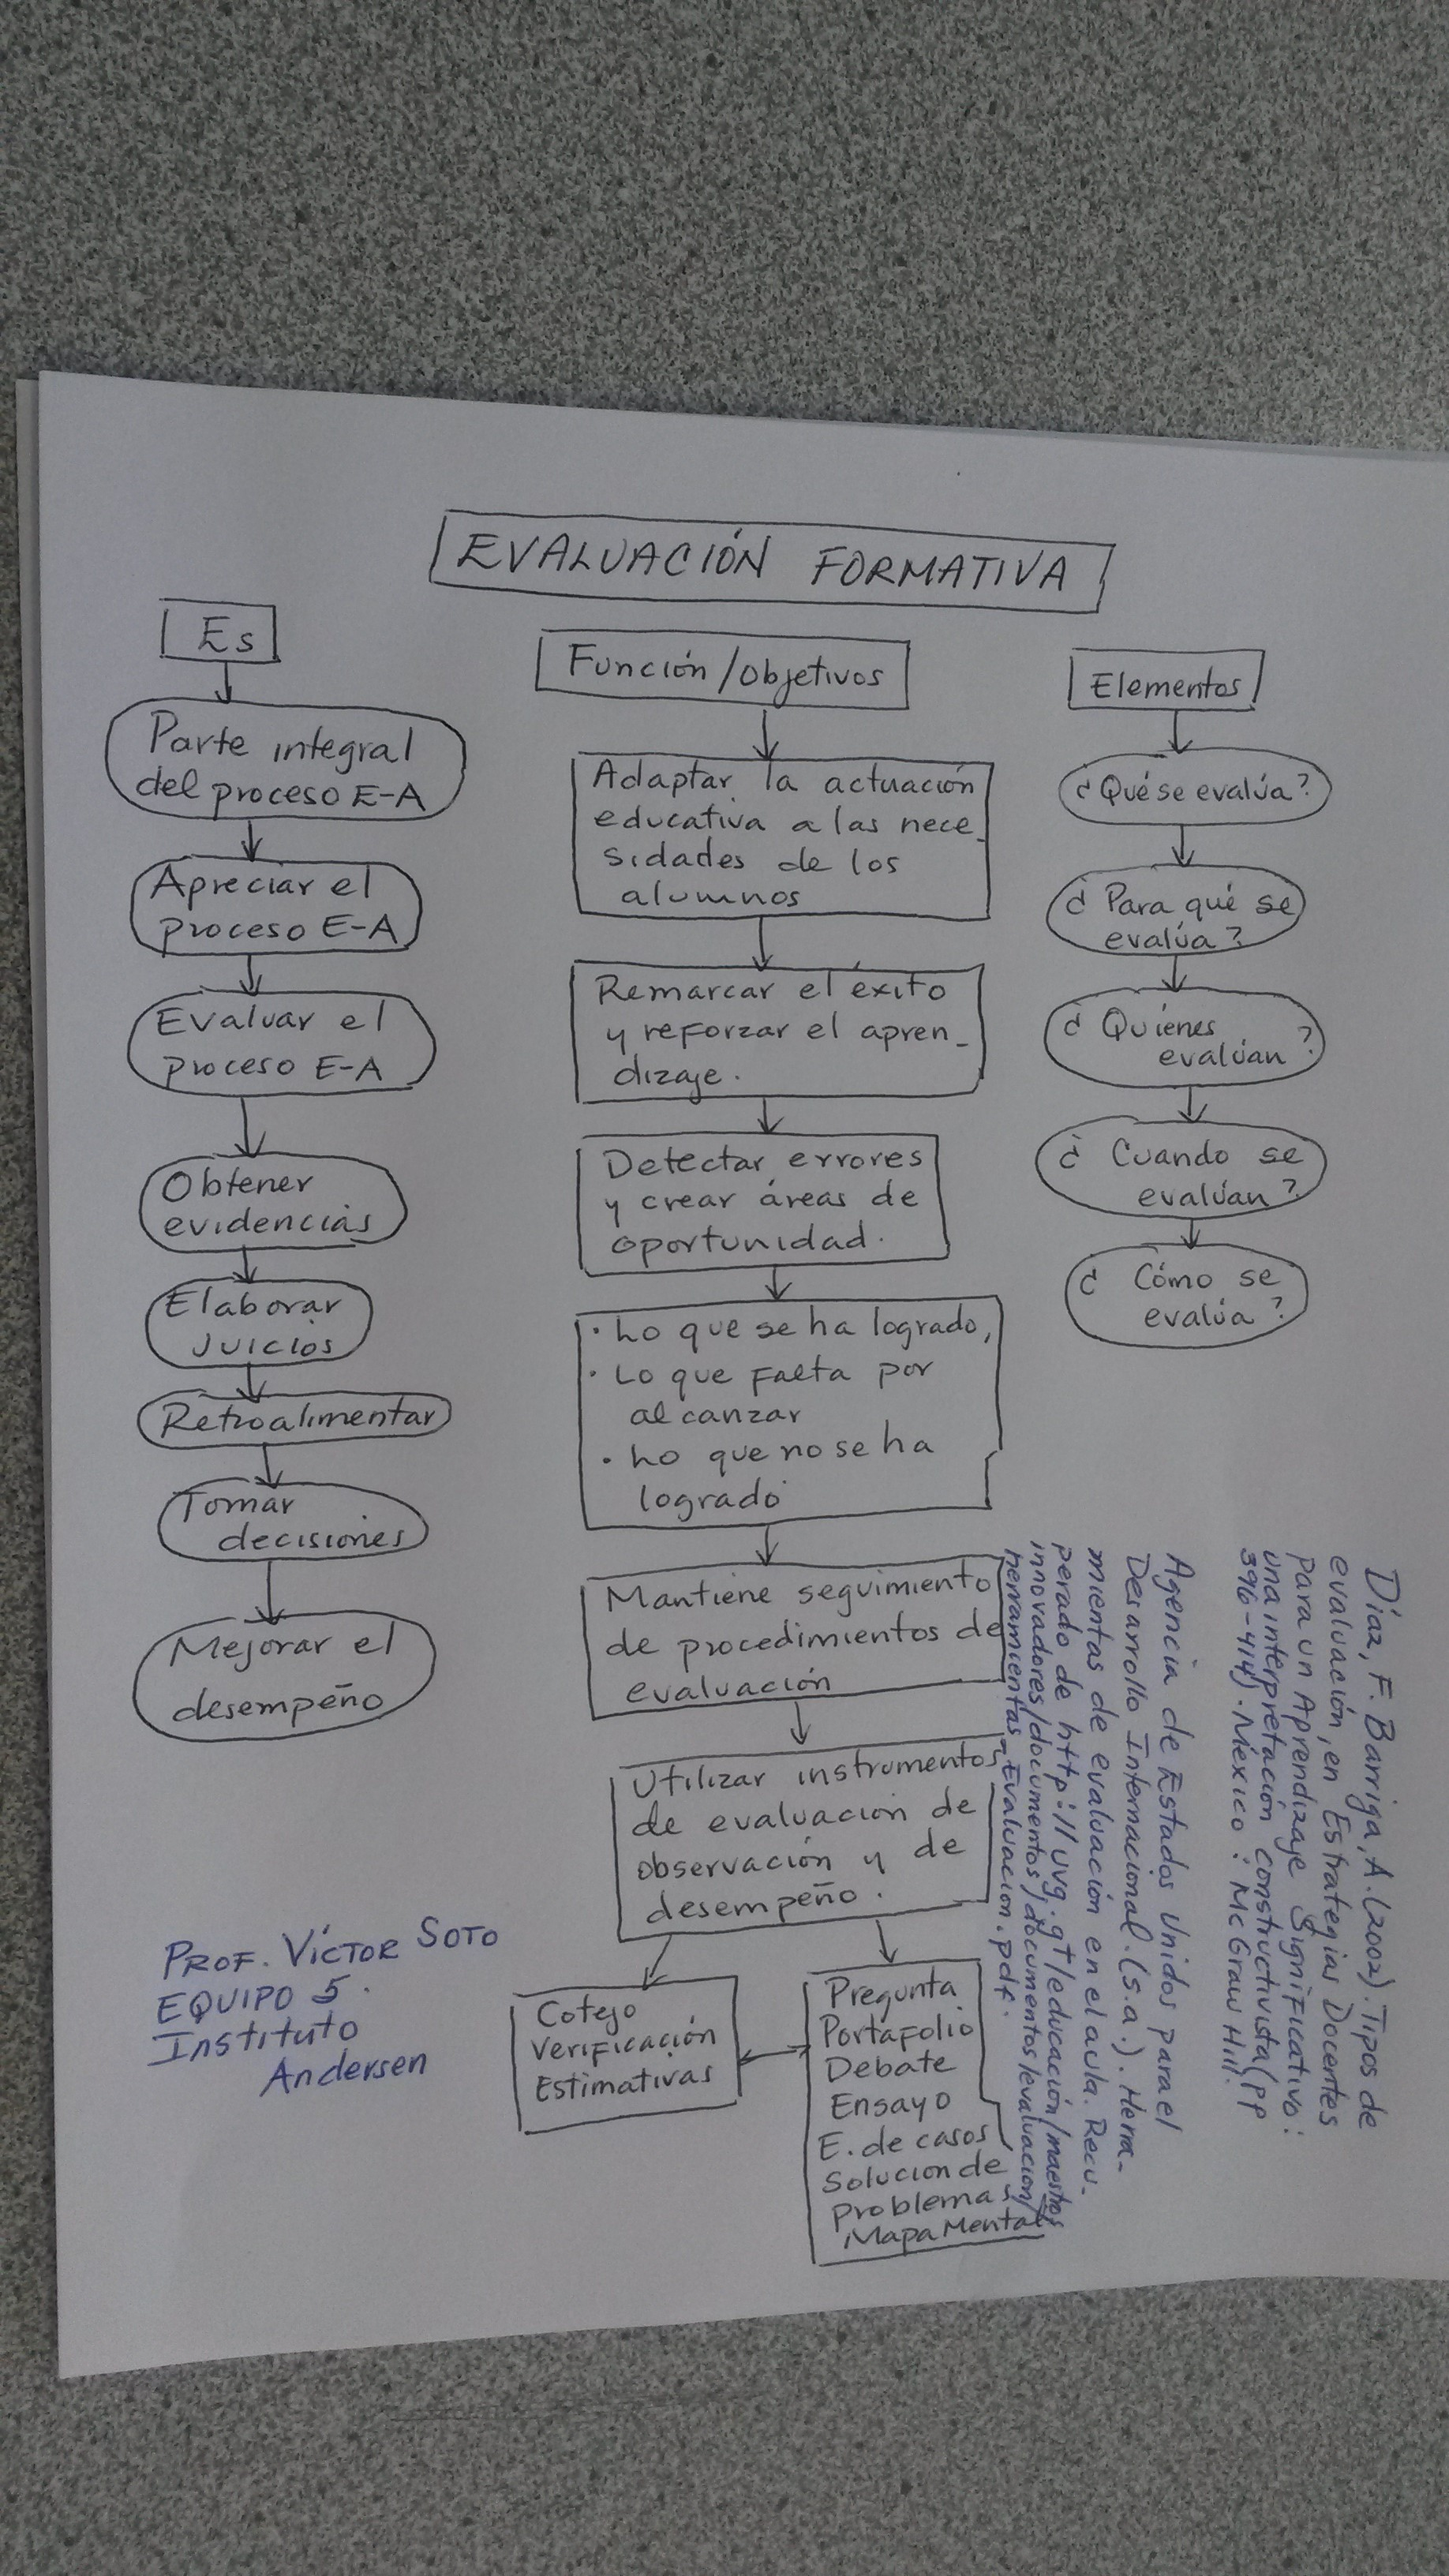 EVALUACIÓN FORMATIVA
Es
Parte integral
del proceso E-A
Apreciar el
proceso E-A
Evaluar el
proceso E-A
Obtener
evidencias
Elaborar
Juicios
Retroalimentar
Tomar
decisiones
Mejorar el
desempeño
Función/objetivos
Adaptar la actuación
educativa a las nece-
sidades de los
alumnos
Remarcar el éxito
y reforzar el apren-
dizaje.
Detectar errores
y crear áreas de
oportunidad.
· Lo que se ha logrado,
· Lo que falta por
alcanzar
· Lo que no se ha
logrado
Mantiene seguimiento
de procedimientos de
evaluación
Utilizar instrumentos
de evaluación de
observación y de
desempeño.
Cotejo
Verificación
Estimativas
Pregunta
Portafolio
Debate
Ensayo
E. de casos
Solución de
problemas
Mapa Mental
Elementos
¿Qué se evalúa?
¿Para qué se
evalúa?
¿Quienes
evalúan?
¿Cuando se
evalúan?
¿Cómo se
evalúa?
Díaz, F. Barriga, A. (2002). Tipos de
evaluación, en Estrategias Docentes
para un Aprendizaje Significativo:
una interpretación constructivista (pp
396-414). México: Mc Graw Hill.
Agencia de Estados Unidos para el
Desarrollo Internacional. (s.a.). Herra-
mientas de evaluación en el aula. Recu-
perado de http://uvg.gt/educación/maestros
innovadores/documentos/documentos/evaluacion/
herramientas-Evaluacion.pdf.
PROF. VÍCTOR SOTO
EQUIPO 5.
Instituto
Andersen